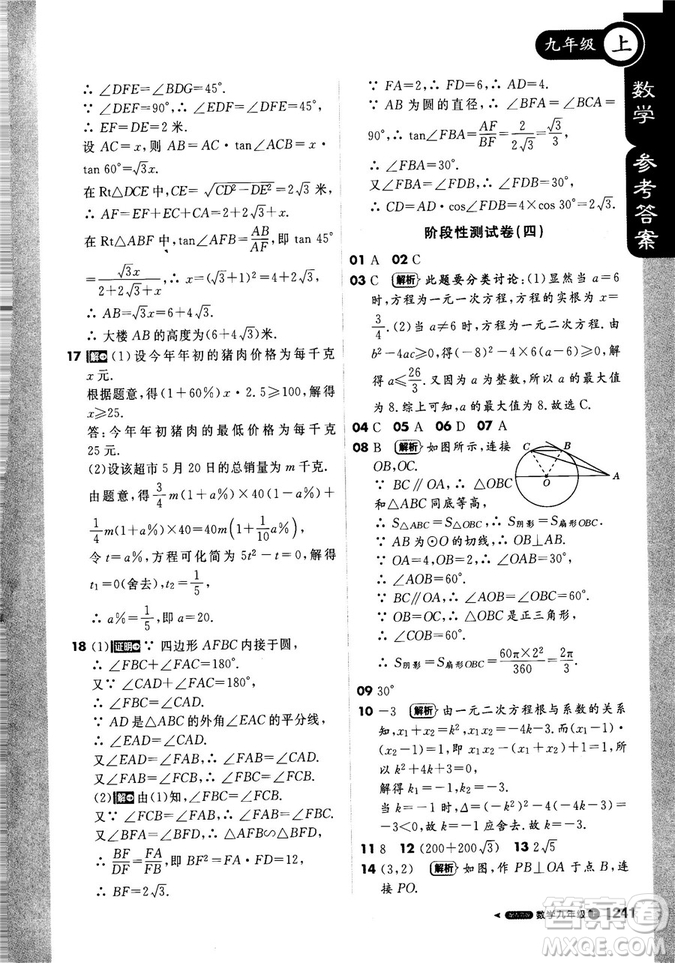 九年级 上
数学 参考答案
∴ ∠DFE=∠BDG=45°.
∵ ∠DEF=90°, ∴ ∠EDF=∠DFE=45°.
∴ EF=DE=2 米.
设 AC=x, 则 AB=AC·tan∠ACB=x·
tan 60°=√3x.
在 Rt△DCE 中,CE=√(CD²-DE²)=2√3 米,
∵ 在 Rt△ABF 中,tan∠AFB=AB/AF,即 tan 45°
=√3x/(2+2√3+x), ∴ x=(√3+1)²=4+2√3(米).
∴ AB=√3x=6+4√3.
∴ 大楼 AB 的高度为(6+4√3)米.
17 解 (1)设今年年初的猪肉价格为每千克
x 元.
根据题意,得(1+60%)x·2.5≥100,解得
x≥25.
答:今年年初猪肉的最低价格为每千克
25 元.
(2)设该超市 5 月 20 日的总销量为 m 千克.
由题意,得 3/4 m(1+a%)×40(1-a%)+
1/4 m(1+a%)×40=40m(1+1/10 a%).
令 t=a%,方程可化简为 5t²-t=0,解得
t₁=0(舍去),t₂=1/5,
∴ a%=1/5,即 a=20.
18 (1)证明 ∵ 四边形 AFBC 内接于圆,
∴ ∠FBC+∠FAC=180°.
又∵ ∠CAD+∠FAC=180°,
∴ ∠FBC=∠CAD.
∵ AD 是△ABC 的外角∠EAC的平分线,
∴ ∠EAD=∠CAD.
又∵ ∠EAD=∠FAB, ∴ ∠FAB=∠CAD.
又∵ ∠FAB=∠FCB, ∴ ∠FBC=∠FCB.
(2)解 由(1)知,∠FBC=∠FCB.
又∵ ∠FCB=∠FAB, ∴ ∠FAB=∠FBC.
又∵ ∠BFA=∠BFD, ∴ △AFB∽△BFD.
∴ BF/DF=FA/FB,即 BF²=FA·FD=12,
∴ BF=2√3.
∵ FA=2, ∴ FD=6,AD=4.
∵ AB 为圆的直径, ∴ ∠BFA=∠BCA=
90°, ∴ tan∠FBA=AF/BF=2/(2√3)=√3/3,
∴ ∠FBA=30°.
又∵ ∠FDB=∠FBA=30°,
∴ CD=AD·cos∠FDB=4×√3/2=2√3.
阶段性测试卷(四)
01 A 02 C
03 C 解析 此题要分类讨论:(1)显然当 a=6
时,方程为一元一次方程,方程的实根为 x=
3/4.(2)当 a≠6 时,方程为一元二次方程.由
b²-4ac=(-8)²-4(a-6)×6≥0,解
得 a≤26/3.又因为 a 为整数,所以 a 的最大值
为 8.综上可知,a 的最大值为 8.故选 C.
04 C 05 A 06 D 07 A
08 B 解析 如图所示,连接
OB,OC.
∵ BC∥OA, ∴ △OBC
和△ABC 同底等高,
∴ S△ABC=S△OBC, ∴ S阴影=S扇形OBC.
∵ AB 为⊙O 的切线, ∴ OB⊥AB.
∵ OA=4,OB=2, ∴ ∠OAB=30°,
∴ ∠AOB=60°.
∵ BC∥OA, ∴ ∠OBC=∠AOB=60°.
∵ OB=OC, ∴ △OBC 为正三角形,
∴ ∠COB=60°,
∴ S阴影=S扇形OBC=60π×2²/360=2π/3.
A
B
C
O
09 30°
10 -3 解析 由一元二次方程根与系数的关系
知,x₁+x₂=k²,x₁x₂=k+1, ∴ (x₁-1)
·(x₂-1)=x₁x₂-(x₁+x₂)+1=8,
∴ k²-k+6=0.
解得 k₁=-1,k₂=-3.
当 k=-1 时,Δ=
-3<0,∴ k=-1 应舍去. ∴ k=-3.
11 8 12 (200+200√3) 13 2√5
14 (3,2) 解析 如图,作 PB⊥OA 于点 B,连
接 PO.
数学九年级 上 241
答案圈
MXQE.COM